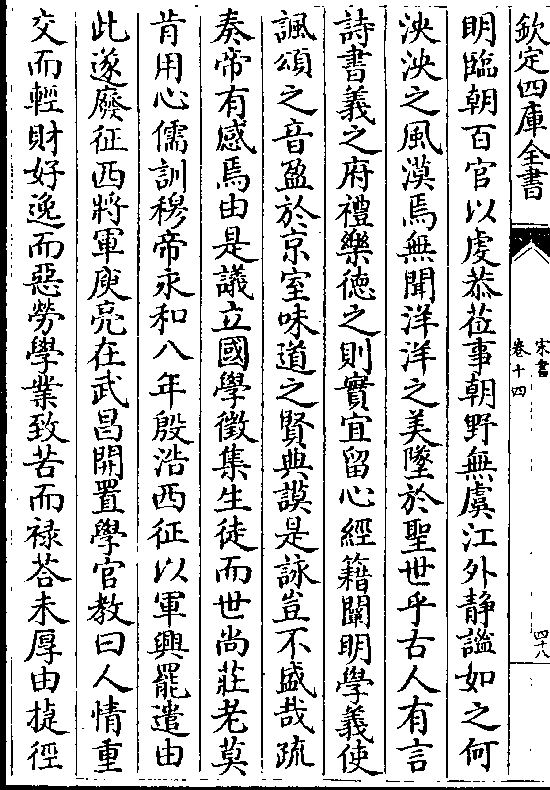 欽定四庫全書
宋書
卷十四
四十八
明臨朝百官以虔恭莅事朝野無虞江外静謐如之何
泱泱之風漠焉無聞洋洋之美墜於聖世乎古人有言
詩書義之府禮樂德之則實宜留心經籍闡明學義使
諷頌之音盈於京室味道之賢典謨是詠豈不盛哉疏
奏帝有感焉由是議立國學徵集生徒而世尚莊老莫
肯用心儒訓穆帝永和八年殷浩西征以軍興罷遣由
此遂廢征西將軍庾亮在武昌開置學官教曰人情重
交而輕財好逸而惡勞學業致苦而禄荅未厚由捷徑